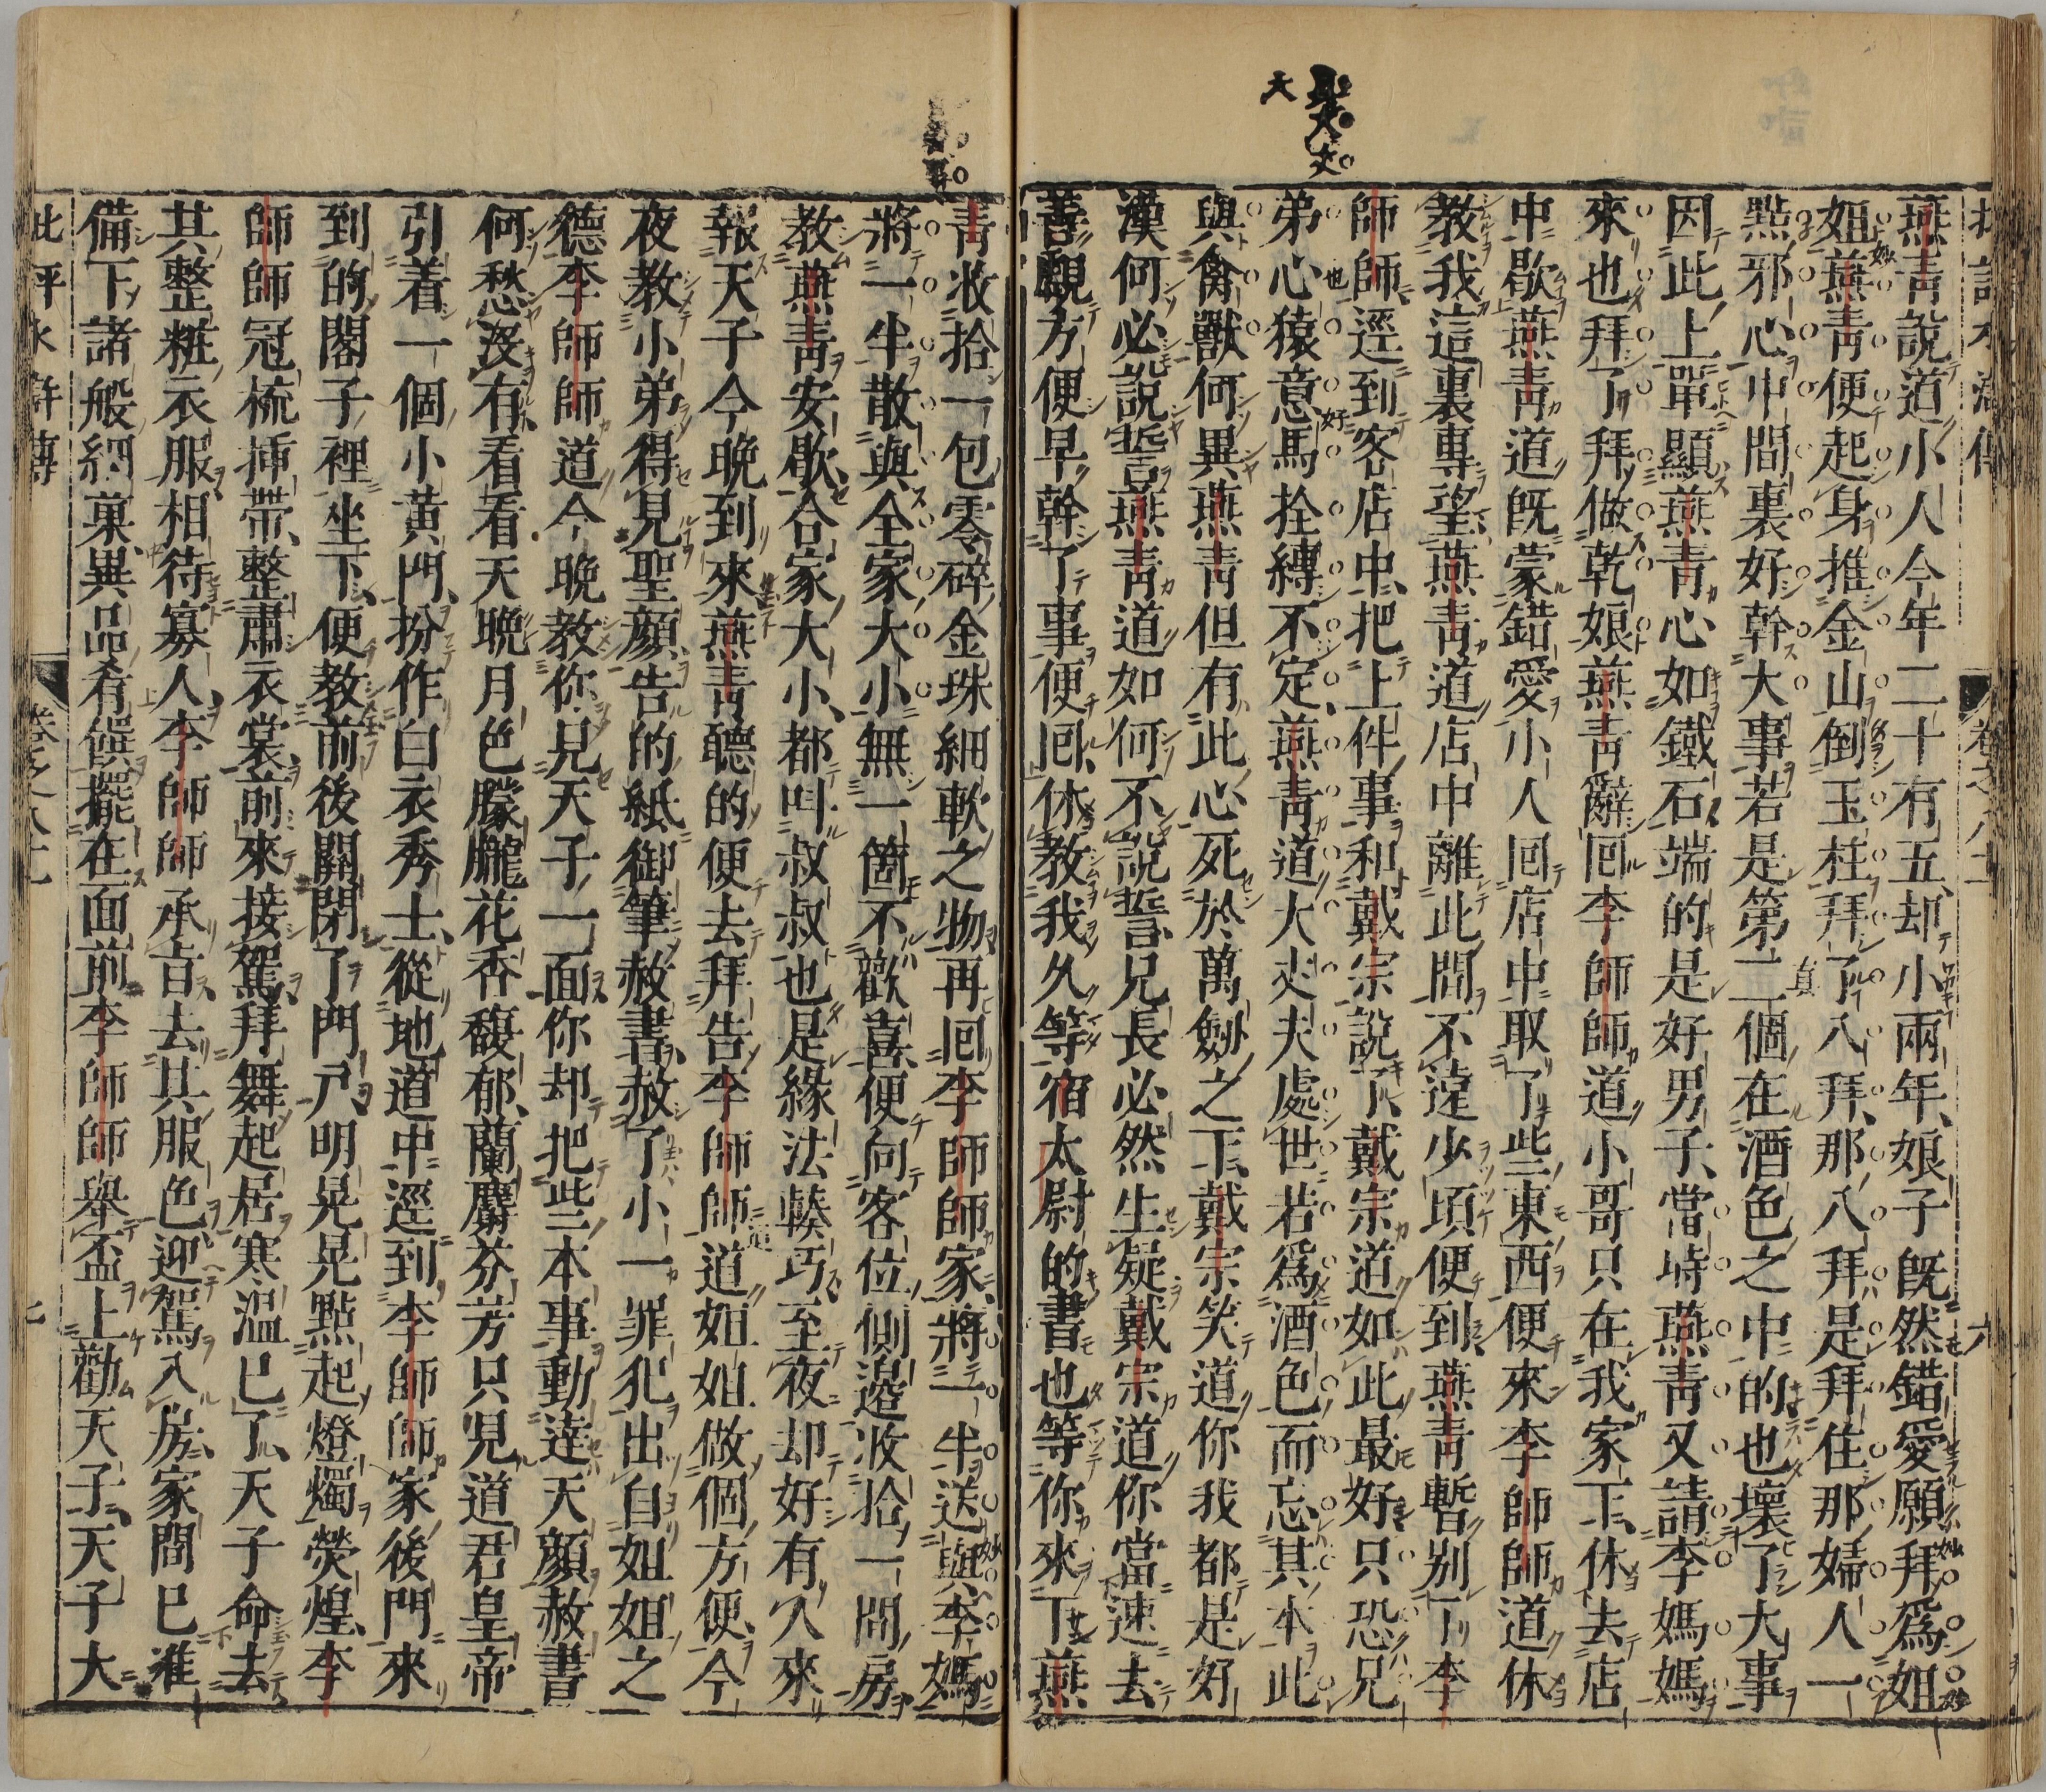 燕青說道小人今年二十有五却小兩年娘子既然錯愛願拜爲姐
姐燕青便起身推金山倒玉柱拜了八拜那八拜是拜住那婦人一
點邪心中間裏好幹大事若是第二個在酒色之中的也壞了大事
因此上單顯燕青心如鐵石端的是好男子當時燕青又請李媽媽
來也拜了拜做乾娘燕青辭囘李師師道小哥只在我家下休去店
中歇燕青道既蒙錯愛小人囘店中取了些東西便來李師師道休
教我這裏專望燕青道店中離此間不遠少頃便到燕青暫别了李
師師逕到客店中把上件事和戴宗說了戴宗道如此最好只恐兄
弟心猿意馬拴縛不定燕青道大丈夫處世若爲酒色而忘其本此
與禽獸何異燕青但有此心死於萬劒之下戴宗笑道你我都是好
漢何必說誓燕青道如何不說誓兄長必然生疑戴宗道你當速去
善覷方便早幹了事便囘休教我久等宿太尉的書也等你來下燕
青收拾一包零碎金珠細軟之物再囘李師師家將一半送與李媽
將一半散與全家大小無一箇不歡喜便向客位側邊收拾一間房
教燕青安歇合家大小都叫叔叔也是緣法輳巧至夜却好有人來
報天子今晩到來燕青聽的便去拜告李師師道姐姐做個方便今
夜教小弟得見聖顏告的紙御筆赦書赦了小一罪犯出自姐姐之
德李師師道今晩教你見天子一面你却把些本事動達天顔赦書
何愁沒有看看天晩月色朦朧花香馥郁蘭麝芬芳只見道君皇帝
引着一個小黄門扮作白衣秀士從地道中逕到李師師家後門來
到的閣子裡坐下便教前後關閉了門戶明晃晃點起燈燭熒煌李
師師冠梳揷帶整肅衣裳前來接駕拜舞起居寒温已了天子命去
其整粧衣服相待寡人李師師承旨去其服色迎駕入房家間已准
備下諸般細菓異品肴饌擺在面前李師師舉盃上勸天子天子大